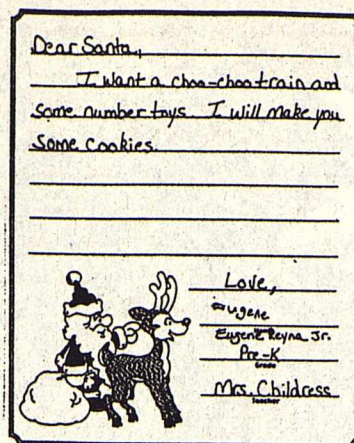 Dear Santa,
I want a choo-choo train and
some number toys. I will make you
some cookies.
Love,
Eugene
Eugene Reyna Jr.
Pre-K
Grade
Mrs. Childress
Teacher